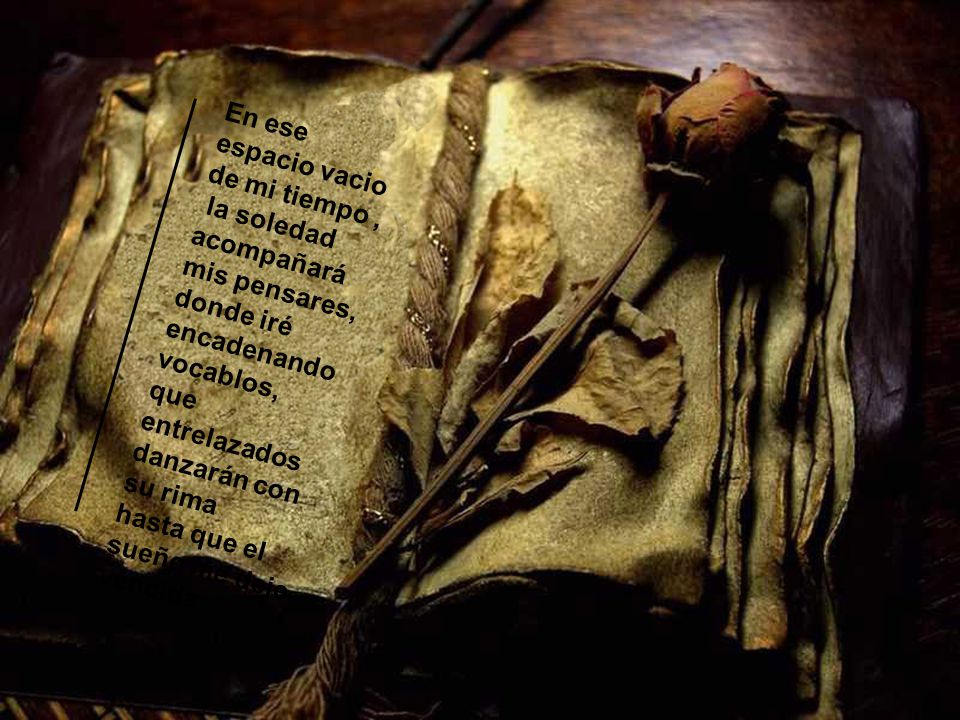 En ese
espacio vacio
de mi tiempo ,
la soledad
acompañará
mis pensares,
donde iré
encadenando
vocablos,
que
entrelazados
danzarán con
su rima
hasta que el
sueño